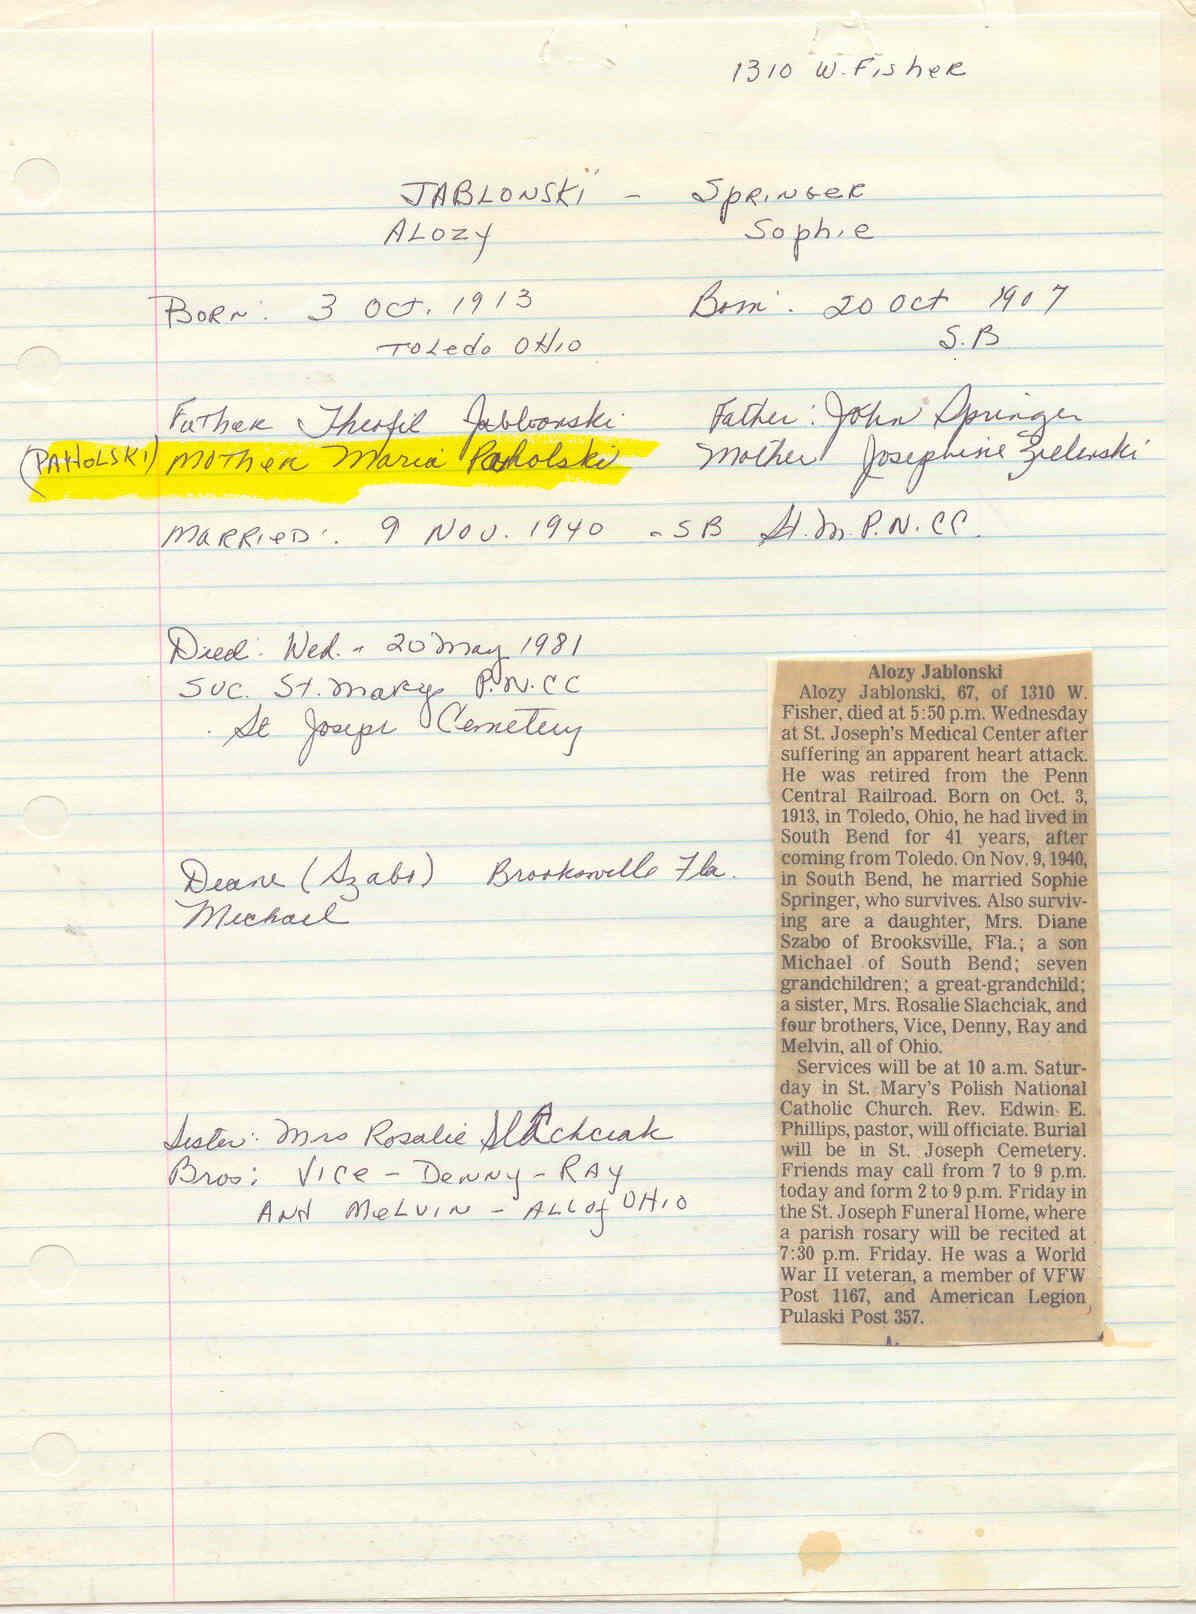 1310 W. Fisher
JABLONSKI - Springer
Alozy Sophie
Born: 3 Oct. 1913 Born: 20 Oct 1907
Toledo Ohio S.B
Father Theofil Jablonski Father: John Springer
(PAHOLSKI) Mother Maria Paholski Mother Josephine Zielinski
Married: 9 Nov. 1940 - SB St. M. P.N.CC.
Died: Wed. - 20 May 1981
Svc. St. Marys P.N.CC
St Joseph Cemetery
Diane (Szabo) Brooksville Fla.
Michael
Sister: Mrs Rosalie Slachciak
Bros: Vice - Denny - Ray
And Melvin - All of Ohio
Alozy Jablonski
Alozy Jablonski, 67, of 1310 W.
Fisher, died at 5:50 p.m. Wednesday
at St. Joseph's Medical Center after
suffering an apparent heart attack.
He was retired from the Penn
Central Railroad. Born on Oct. 3,
1913, in Toledo, Ohio, he had lived in
South Bend for 41 years, after
coming from Toledo. On Nov. 9, 1940,
in South Bend, he married Sophie
Springer, who survives. Also surviv-
ing are a daughter, Mrs. Diane
Szabo of Brooksville, Fla.; a son
Michael of South Bend; seven
grandchildren; a great-grandchild;
a sister, Mrs. Rosalie Slachciak, and
four brothers, Vice, Denny, Ray and
Melvin, all of Ohio.
Services will be at 10 a.m. Satur-
day in St. Mary's Polish National
Catholic Church. Rev. Edwin E.
Phillips, pastor, will officiate. Burial
will be in St. Joseph Cemetery.
Friends may call from 7 to 9 p.m.
today and form 2 to 9 p.m. Friday in
the St. Joseph Funeral Home, where
a parish rosary will be recited at
7:30 p.m. Friday. He was a World
War II veteran, a member of VFW
Post 1167, and American Legion
Pulaski Post 357.